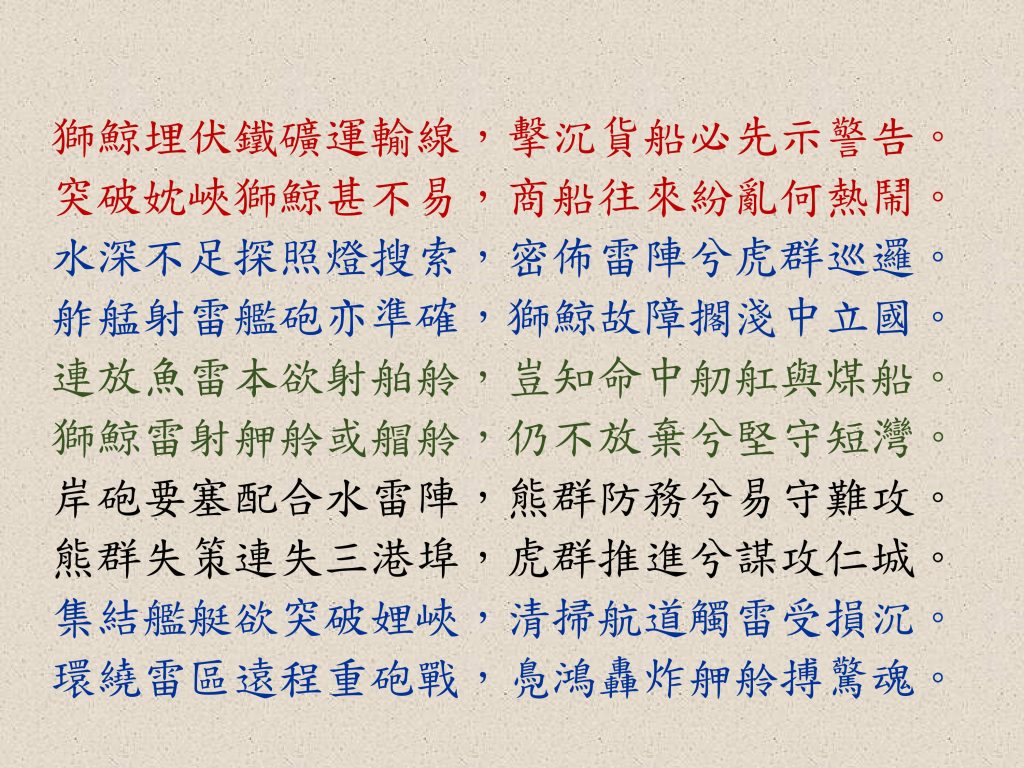 獅鯨埋伏鐵礦運輸線，擊沉貨船必先示警告。
突破妉峽獅鯨甚不易，商船往來紛亂何熱鬧。
水深不足探照燈搜索，密佈雷陣兮虎群巡邏。
舴艋射雷艦砲亦準確，獅鯨故障擱淺中立國。
連放魚雷本欲射舶舲，豈知命中舠舡與煤船。
獅鯨雷射舺舲或艒舲，仍不放棄兮堅守短灣。
岸砲要塞配合水雷陣，熊群防務兮易守難攻。
熊群失策連失三港埠，虎群推進兮謀攻仁城。
集結艦艇欲突破娌峽，清掃航道觸雷受損沉。
環繞雷區遠程重砲戰，鳧鴻轟炸舺舲搏驚魂。